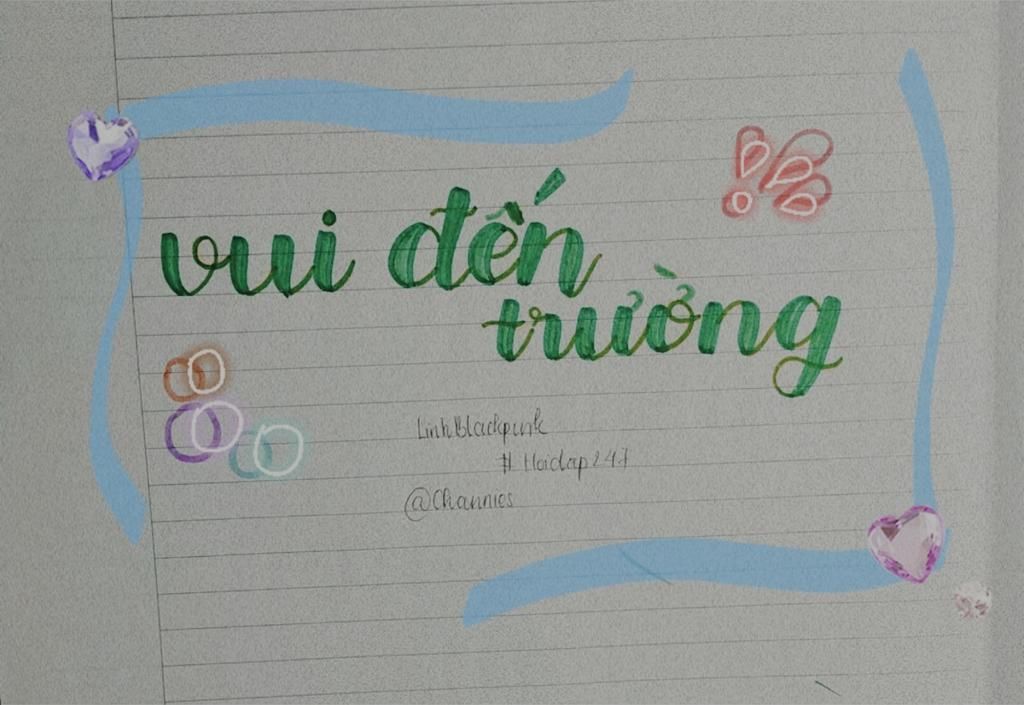 vui đến
trường
LinhBlackpink
# Hoidap247
@Channies